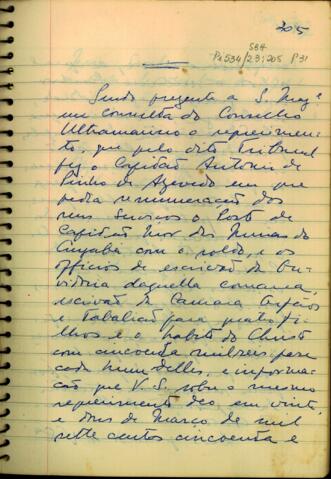 205
584
Pi 534/23;205 P31
Sendo presente a S. Mag.e
em consulta do Conselho
Ultramarino o requerimen-
to, que pelo dito Tribunal
fez o Capitão António de
Pinho de Azevedo em que
pedia remuneração dos
seus serviços o Posto de
Capitão Mor das Minas do
Cuyabá com o soldo, e os
officios de escrivão da Ou-
vidoria daquella comarca,
escrivão da Camara Orfãos
e Tabalião para quatro fi-
lhos e o habito de Christo
com cincoenta milreis para
cada hum delles, e informa-
cão que V. S. sobre o mesmo
requerimento deo em vinte
e dous de Março de mil
sette centos cincoenta e